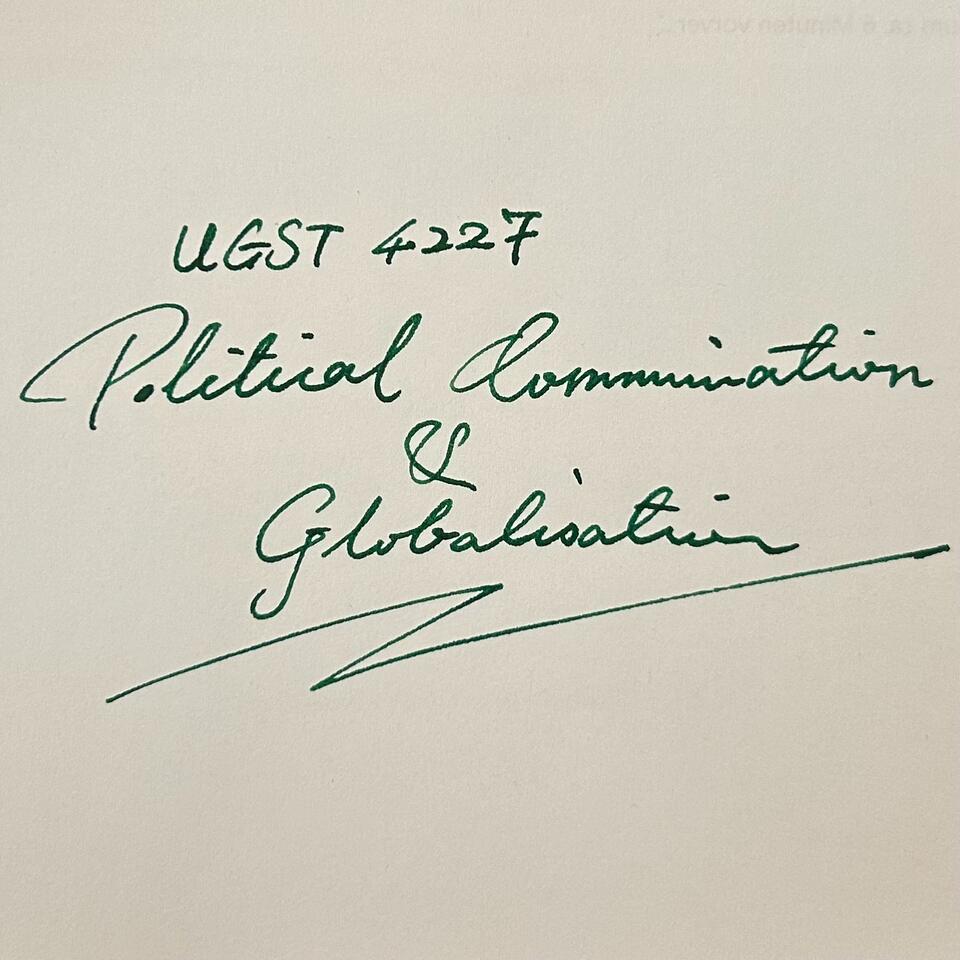 um ca. 6 Minuten vorver
UGST 4227
Political Communication
&
Globalisation